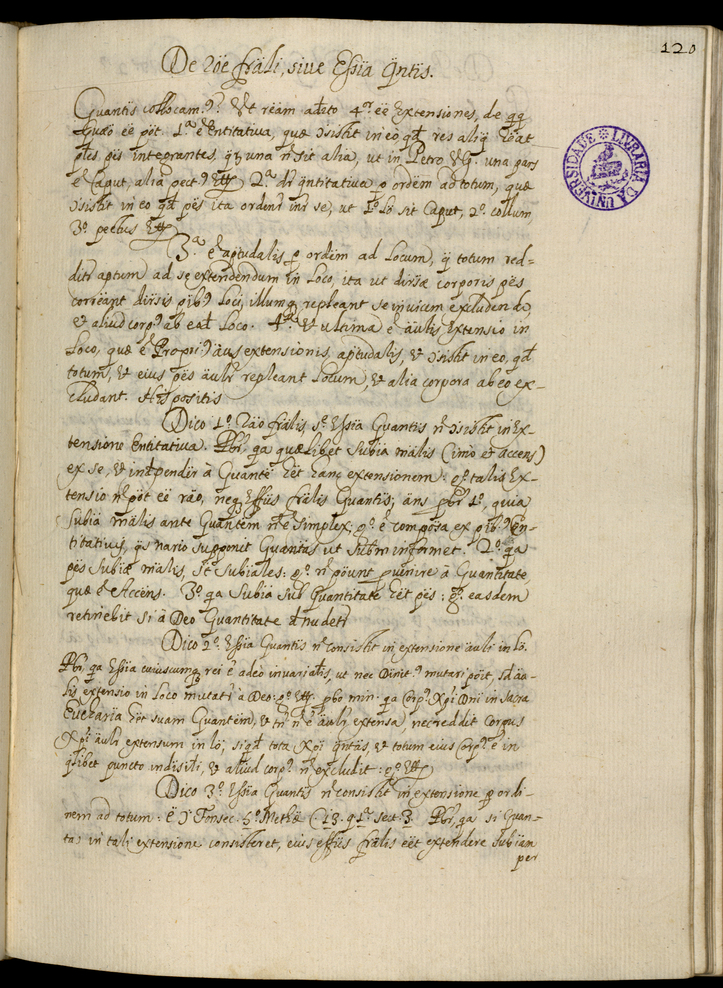 120
De röe fräli, sive Eßïa qntïs.
Quantïs collocam9. Et reäm adeto 4r eë Extensiones, de qq
ee pöt. 1a ē Entitativa, quæ ɔsistit in eo qd res aliq häat
ptes, pës integrantes, qr una n sit alia, ut in Petro, una pars
ē Caput, alia pect9 2a dr qntitativa, p ordëm ad totum, quæ
ɔsistit in eo qd pës ita ordinr inr se, ut 1o lö sit Caput, 2o collum
3o pectus
3a ē aptudalis p ordëm ad Locum, q totum red=
ditr aptum ad se extendendum in Loco, ita ut dirsæ corporis pës
correänt dirsis ptib9 Loci, illumq repleant se invicem excludendo,
et aliud corp9 ab eod Loco. 4a et ultima ē äulis Extensio in
Loco, quæ ē Propri9 äus extensionis, aptudalis, et ɔsistit in eo, qd
totum, et eius pës äulr repleant Locum, et alia corpora ab eo ex-
cludant. His positis
Dico 1o Räo frälis sc Eßïa Quantïs n ɔsistit in Ex-
tensione Entitativa. Pbr, qa quælibet Subïa mälis (imo et accens)
ex se, et indpendir à Quantë hët hanc extensionem: go talis Ex-
tensio n pöt eë räo, neq effüs frälis Quantïs; äns pbr 1o, quia
Subïa mälis ante Quantëm n ē Simplex; go ē compösa ex ptib9 En-
titativis, qs nario supponit Quantäs ut Subtm informet. 2o qa
pës Subïæ mälis, st Subïales: go n pöunt pvenire à Quantitate
quæ ē Accëns. 3o qa Subïa Sub Quantitate hët pës: go easdem
retinebit si à Deo Quantitate dnudetr
Dico 2o Eßïa Quantïs n consistit in extensione äuli in lö.
Pbr, qa Eßïa cuiuscumq rei ē adeò invariälis, ut nec Divinit9 mutari pöit, sd äu-
lis extensio in Loco mutatr à Deo: go pbo min. qa Corp9 Xpi Dni in Sacra
Eucharïa hët suam Quantëm, et tn n ē äulr extensa, nec reddit Corpus
Xpi äulr extensum in lö; siqd tota Xpi qntäs, et totum eius Corp9 ē in
qlibet puncto indisili, et aliud corp9 n excludit: go
Dico 3o Eßïa Quantïs n consistit in extensione p ordi-
nem ad totum: ē ɔ Fonsec. 5o Methæ C. 13. q 1a sect. 3. Pbr, qa si Quan=
täs in tali extensione consisteret, eius effüs frälis eët extendere Subïam
per
LIVRARIA DA UNIVERSIDADE